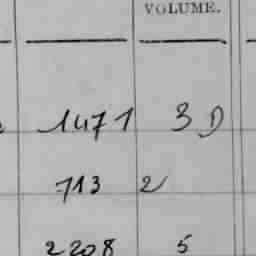 VOLUME.
1471 3 D
713 2
2208 5